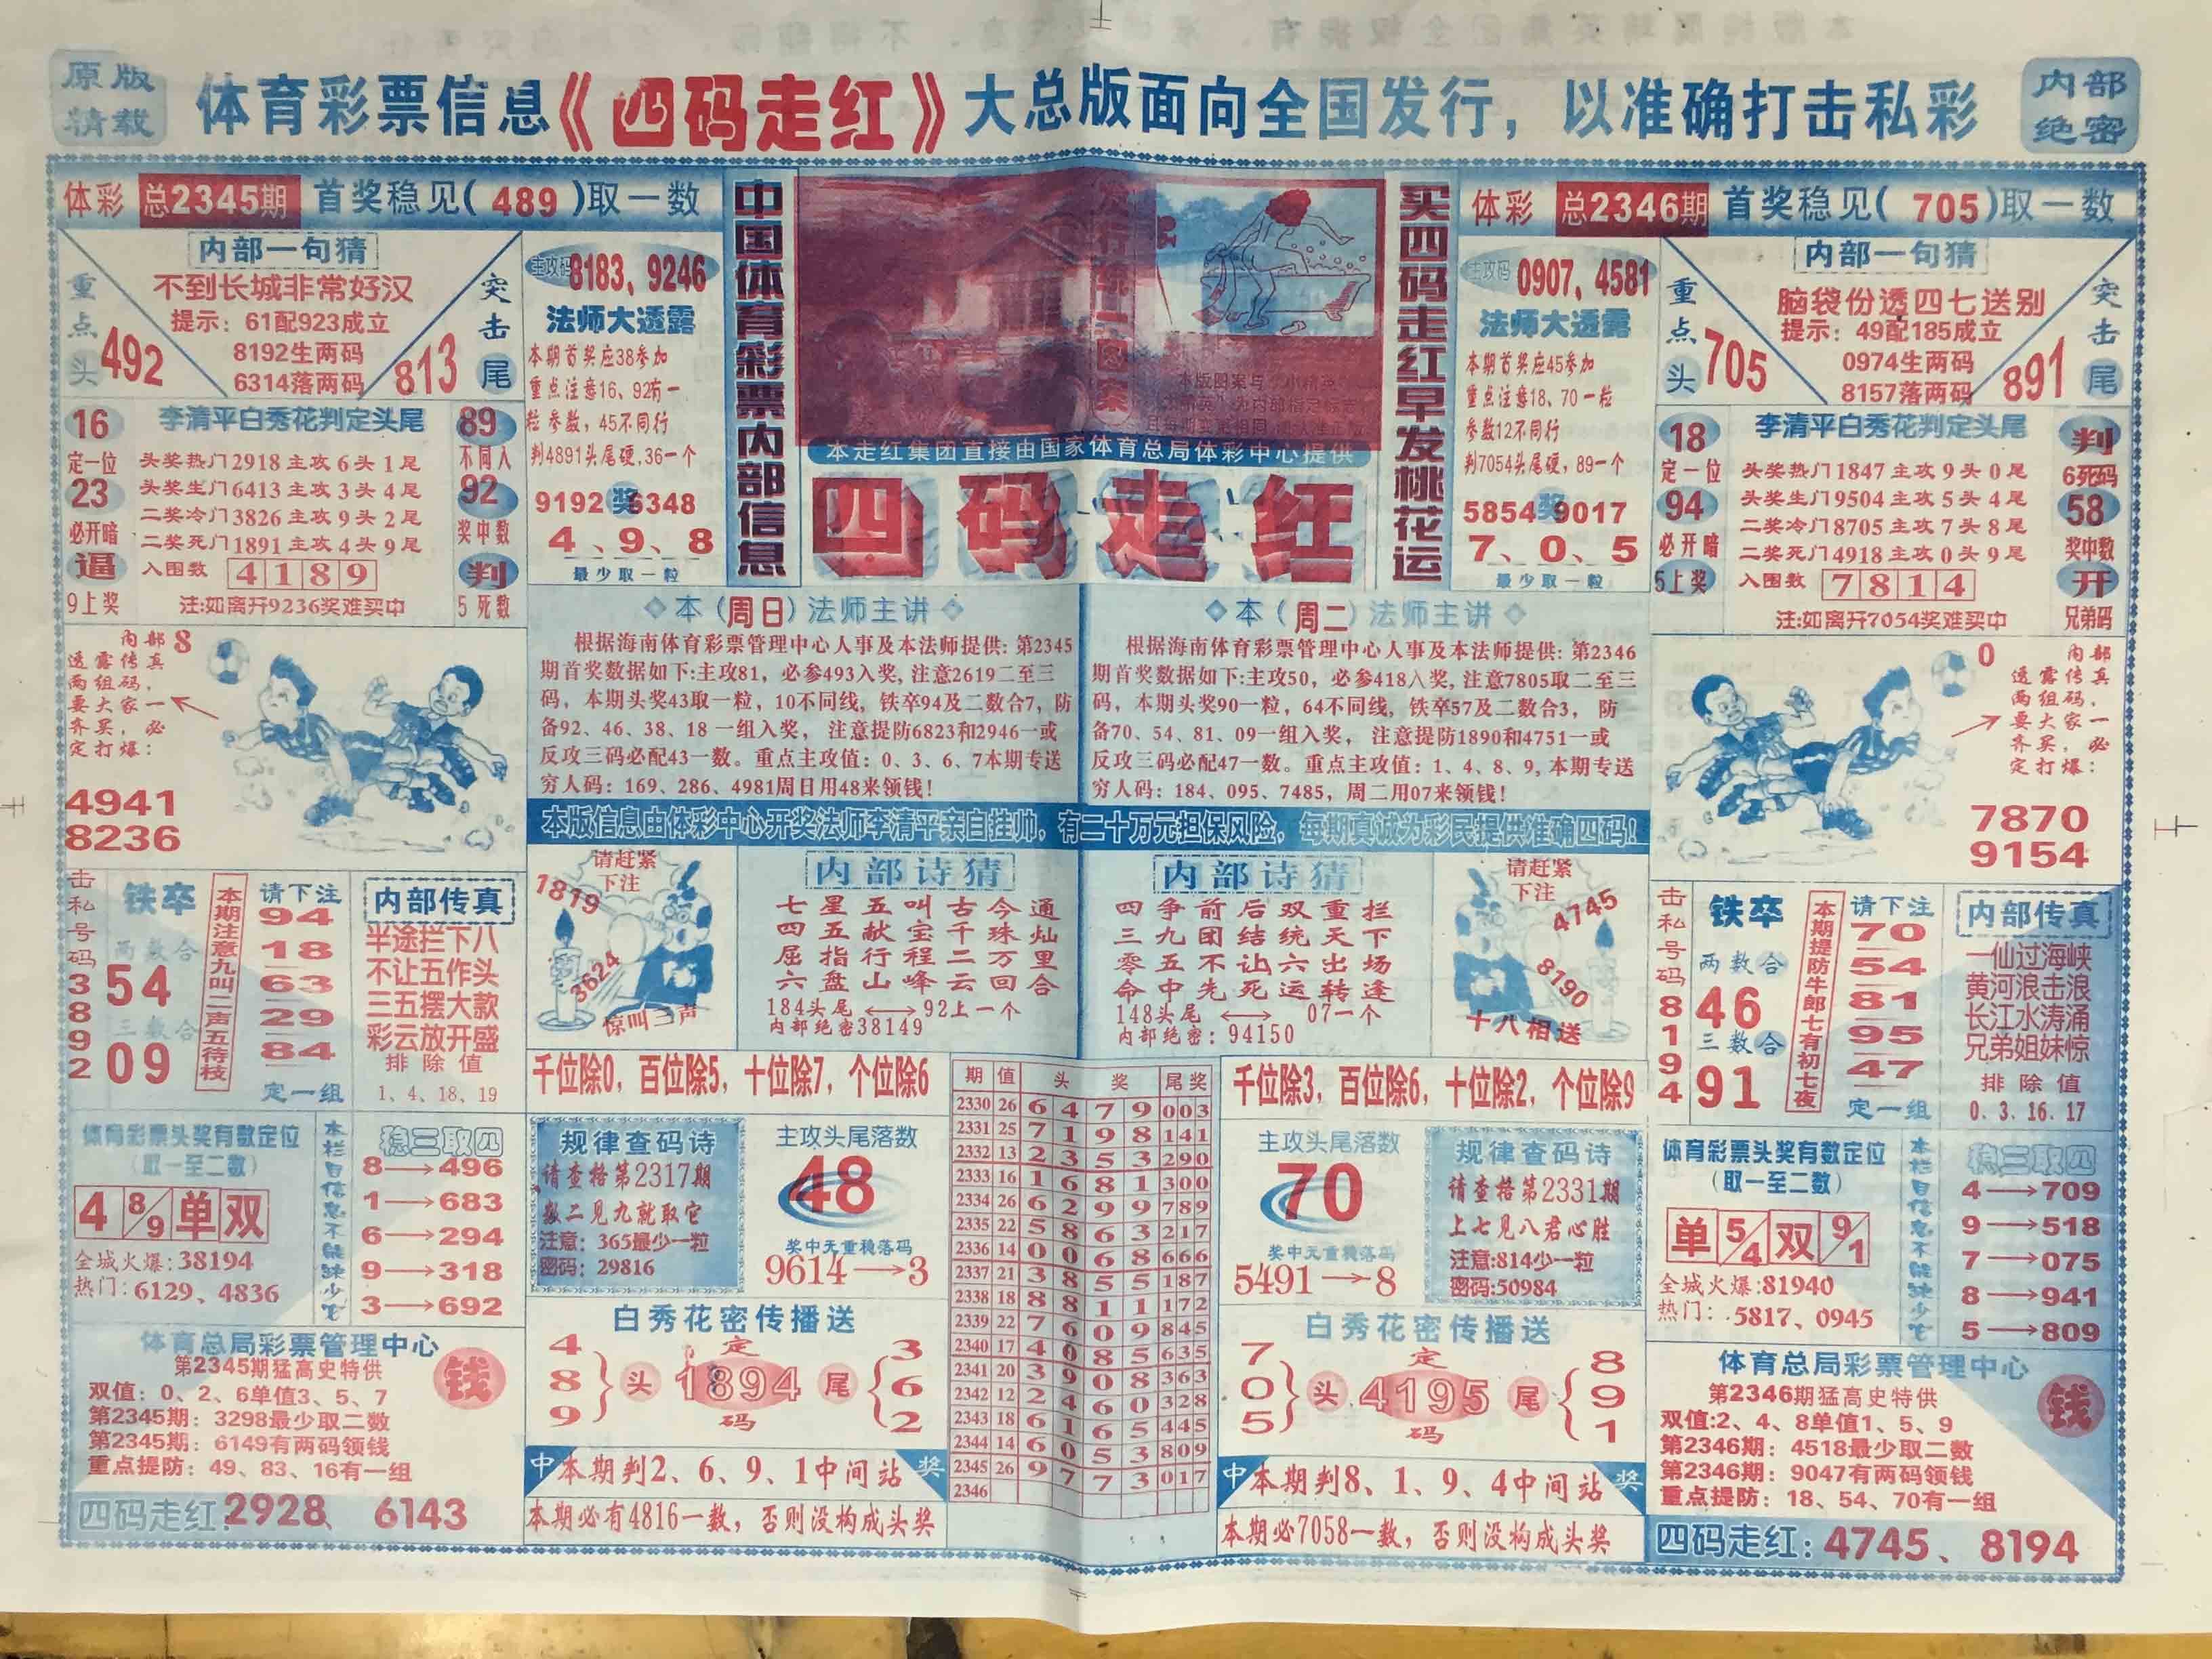 原版
精载
体育彩票信息《四码走红》大总版面向全国发行，以准确打击私彩
内部
绝密
体彩 总2345期 首奖稳见(489)取一数
内部一句猜
不到长城非常好汉
提示：61配923成立
8192生两码
6314落两码
重点头
492
突击尾
813
主攻码 8183、9246
法师大透露
本期首奖应38参加
重点注意16、92有一
粒参数，45不同行
判4891头尾硬，36一个
9192奖6348
4、9、8
最少取一粒
16
定一位
23
必开暗
逼
9上奖
李清平白秀花判定头尾
头奖热门2918主攻6头1尾
头奖生门6413主攻3头4尾
二奖冷门3826主攻9头2尾
二奖死门1891主攻4头9尾
入围数 4189
注：如离开9236奖难买中
89
不同入
92
奖中数
判
5死数
中国体育彩票内部信息
发行统一图案
本走红集团直接由国家体育总局体彩中心提供
四码走红
买四码走红早发桃花运
体彩 总2346期 首奖稳见(705)取一数
主攻码 0907、4581
法师大透露
本期首奖应45参加
重点注意18、70一粒
参数12不同行
判7054头尾硬，89一个
5854奖9017
7、0、5
最少取一粒
内部一句猜
脑袋份透四七送别
提示：49配185成立
0974生两码
8157落两码
重点头
705
突击尾
891
18
定一位
94
必开暗
5上奖
李清平白秀花判定头尾
头奖热门1847主攻9头0尾
头奖生门9504主攻5头4尾
二奖冷门8705主攻7头8尾
二奖死门4918主攻0头9尾
入围数 7814
注：如离开7054奖难买中
判
6死码
58
奖中数
开
兄弟码
内部 8
透露传真
两组码，
要大家一
齐买，必
定打爆：
4941
8236
本(周日)法师主讲
根据海南体育彩票管理中心人事及本法师提供：第2345
期首奖数据如下：主攻81，必参493入奖，注意2619二至三
码，本期头奖43取一粒，10不同线，铁卒94及二数合7，防
备92、46、38、18一组入奖，注意提防6823和2946一或
反攻三码必配43一数。重点主攻值：0、3、6、7本期专送
穷人码：169、286、4981周日用48来领钱！
本(周二)法师主讲
根据海南体育彩票管理中心人事及本法师提供：第2346
期首奖数据如下：主攻50，必参418入奖，注意7805取二至三
码，本期头奖90一粒，64不同线，铁卒57及二数合3，防
备70、54、81、09一组入奖，注意提防1890和4751一或
反攻三码必配47一数。重点主攻值：1、4、8、9，本期专送
穷人码：184、095、7485，周二用07来领钱！
0 内部
透露传真
两组码，
要大家一
齐买，必
定打爆：
7870
9154
本版信息由体彩中心开奖法师李清平亲自挂帅，有二十万元担保风险，每期真诚为彩民提供准确四码！
击私号码3892
铁卒
两数合
54
三数合
09
本期注意九叫二声五待枝
请下注
94
18
63
29
84
定一组
内部传真
半途拦下八
不让五作头
三五摆大款
彩云放开盛
排除值
1、4、18、19
请赶紧
下注
1819
3624
惊叫三声
内部诗猜
七星五叫古今通
四五献宝千珠灿
屈指行程二万里
六盘山峰云回合
184头尾⟷92上一个
内部绝密38149
内部诗猜
四争前后双重拦
三九团结统天下
零五不让六出场
命中先死运转逢
148头尾⟷07一个
内部绝密：94150
请赶紧
下注
4745
8190
十八相送
击私号码8194
铁卒
两数合
46
三数合
91
本期提防牛郎七有初七夜
请下注
70
54
81
95
47
定一组
内部传真
一仙过海峡
黄河浪击浪
长江水涛涌
兄弟姐妹惊
排除值
0、3、16、17
千位除0，百位除5，十位除7，个位除6
千位除3，百位除6，十位除2，个位除9
体育彩票头奖有数定位
(取一至二数)
4 8/9 单 双
全城火爆：38194
热门：6129、4836
本栏目信息不能缺少它
稳三取四
8→496
1→683
6→294
9→318
3→692
规律查码诗
请查格第2317期
数二见九就取它
注意：365最少一粒
密码：29816
主攻头尾落数
48
奖中无重稳落码
9614→3
期 值 头奖 尾奖
2330 26 6 4 7 9 003
2331 25 7 1 9 8 141
2332 13 2 3 5 3 290
2333 16 1 6 8 1 300
2334 26 6 2 9 9 789
2335 22 5 8 6 3 217
2336 14 0 0 6 8 666
2337 21 3 8 5 5 187
2338 18 8 8 1 1 172
2339 22 7 6 0 9 845
2340 17 4 0 8 5 635
2341 20 3 9 0 8 363
2342 12 2 4 6 0 328
2343 18 6 1 6 5 445
2344 14 6 0 5 3 809
2345 26 9 7 7 3 017
2346
主攻头尾落数
70
奖中无重稳落码
5491→8
规律查码诗
请查格第2331期
上七见八君心胜
注意：814少一粒
密码：50984
体育彩票头奖有数定位
(取一至二数)
单 5/4 双 9/1
全城火爆：81940
热门：5817、0945
本栏目信息不能缺少它
稳三取四
4→709
9→518
7→075
8→941
5→809
体育总局彩票管理中心
第2345期猛高史特供
双值：0、2、6单值3、5、7
第2345期：3298最少取二数
第2345期：6149有两码领钱
重点提防：49、83、16有一组
钱
四码走红：2928、6143
白秀花密传播送
4 8 9 头
定
1894
码
尾 3 6 2
中 本期判2、6、9、1中间站 奖
本期必有4816一数，否则没构成头奖
白秀花密传播送
7 0 5 头
定
4195
码
尾 8 9 1
中 本期判8、1、9、4中间站 奖
本期必7058一数，否则没构成头奖
体育总局彩票管理中心
第2346期猛高史特供
双值：2、4、8单值1、5、9
第2346期：4518最少取二数
第2346期：9047有两码领钱
重点提防：18、54、70有一组
钱
四码走红：4745、8194